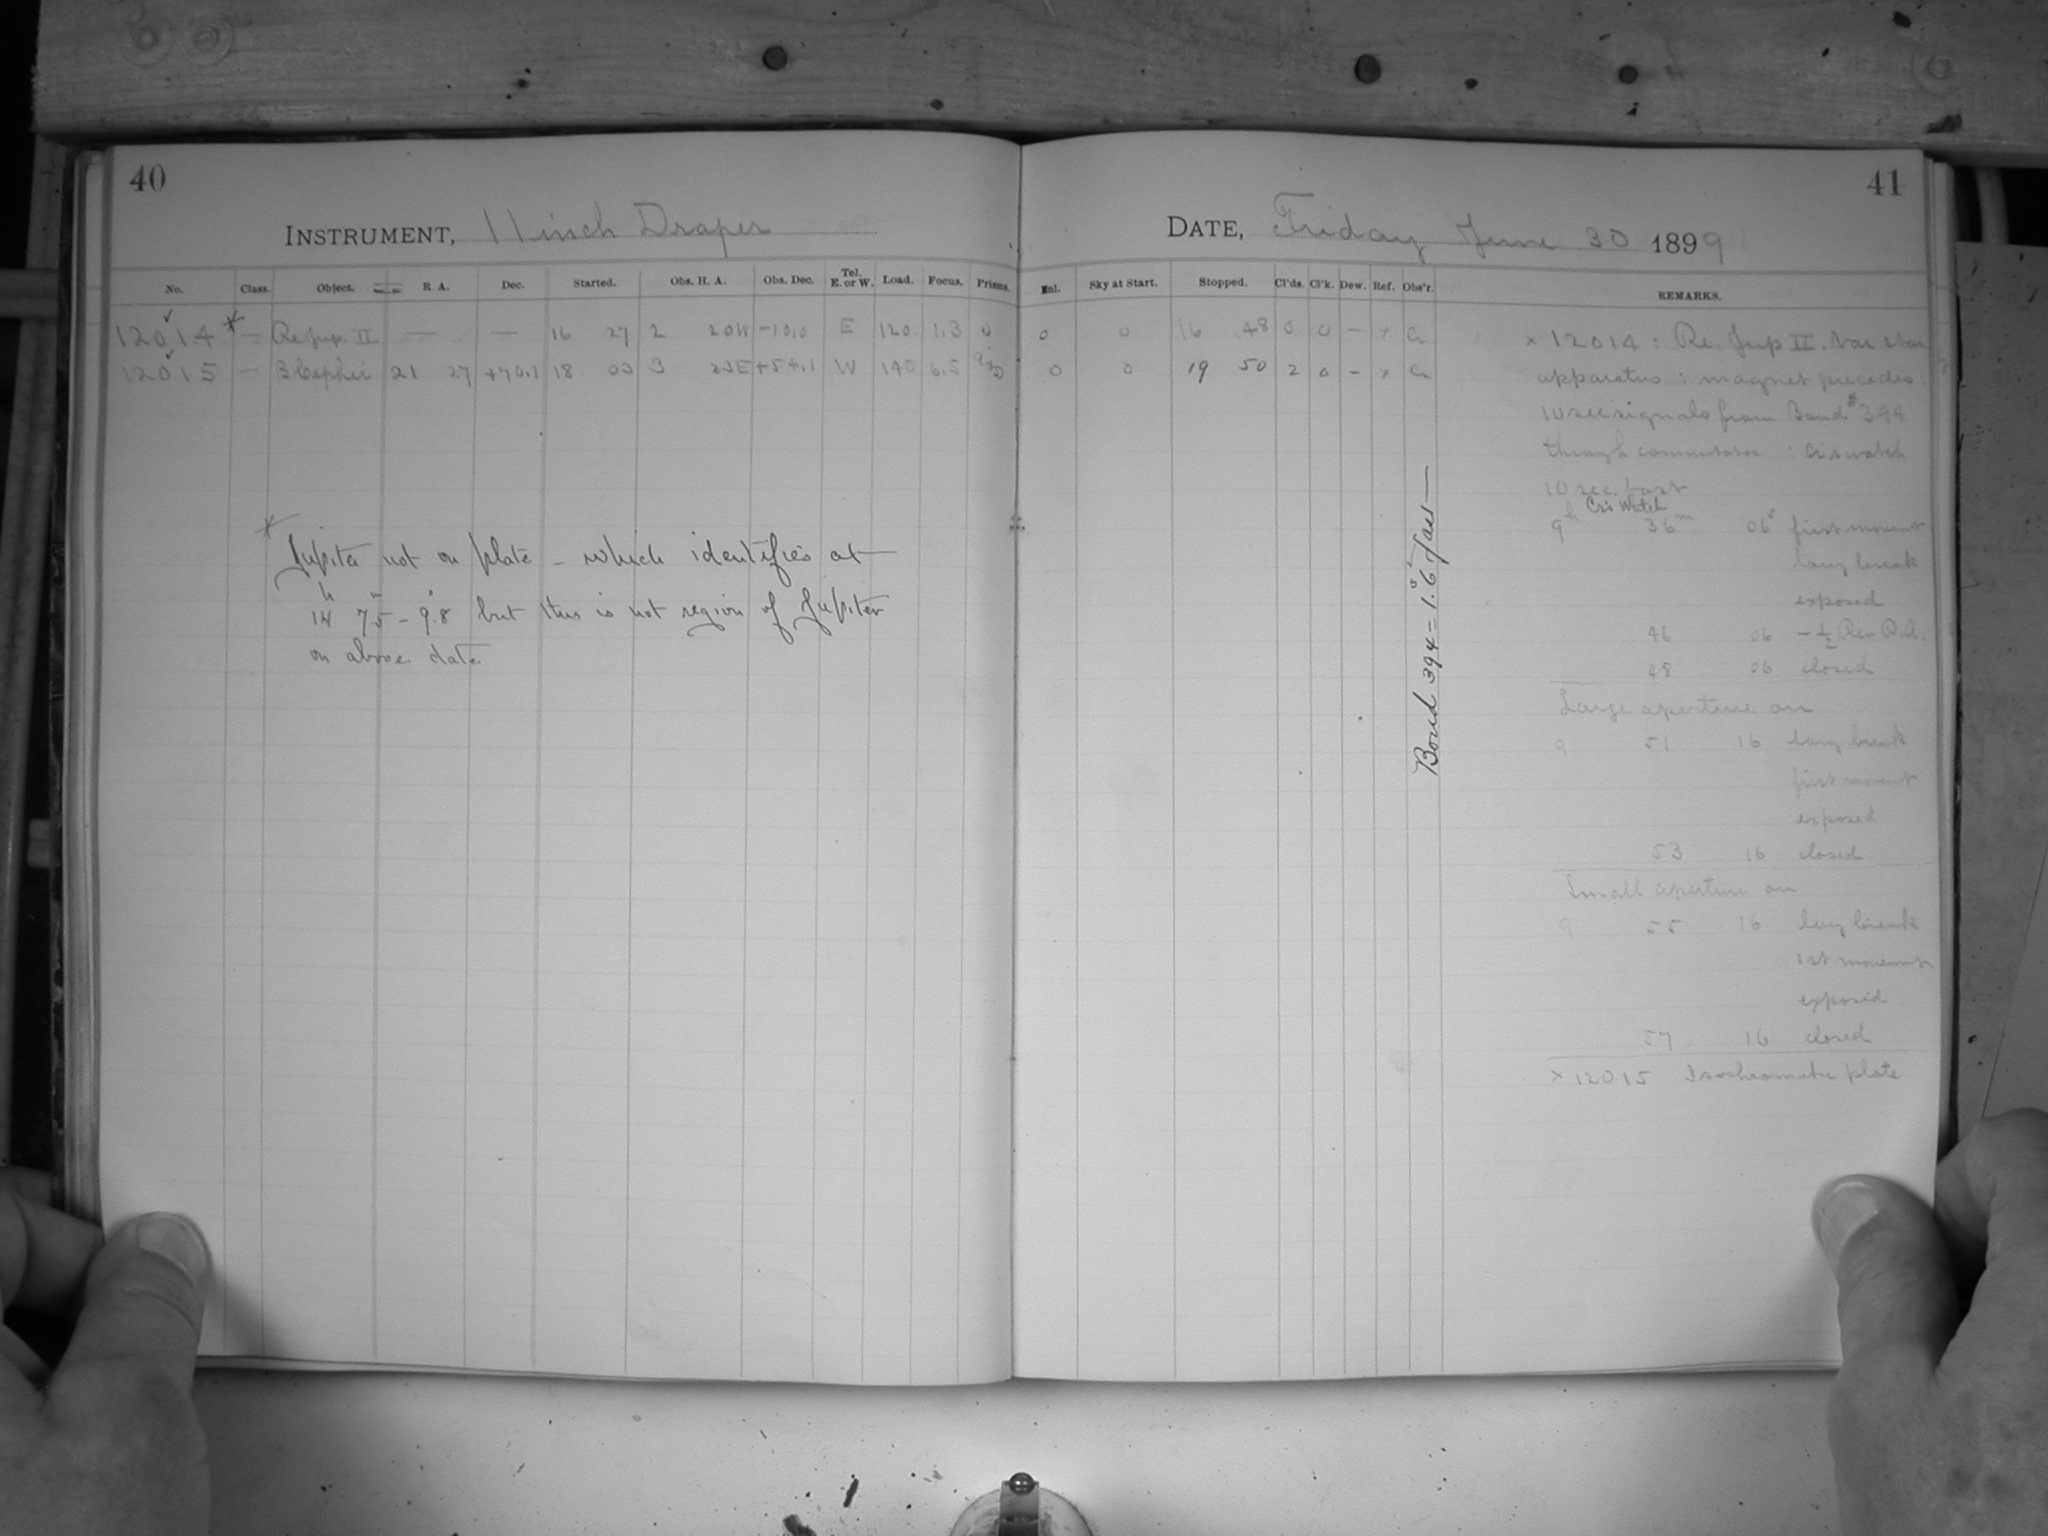 40
INSTRUMENT, 11 inch Draper
No. Class. Object. R. A. Dec. Started. Obs. H. A. Obs. Dec. Tel. E. or W. Load. Focus. Prisms.
12014 * — Re. Jup. II — — 16 27 2 20W -10.0 E 120 1.3 0
12015 — β Cephei 21 27 +70.1 18 03 3 23E +54.1 W 140 6.5
*
Jupiter not on plate - which identifies at
14h 7.5m - 9.8° but this is not region of Jupiter
on above date
41
DATE, Friday June 30 1899
Enl. Sky at Start. Stopped. Cl'ds. Cl'k. Dew. Ref. Obs'r. REMARKS.
0 0 16 48 0 0 - x Cr
0 0 19 50 2 0 - x Cr
Bond 394 = 1.6s fast —
x 12014: Re. Jup II. Var star
apparatus: magnet precedes
10 sec signals from Bond #394
through commutator : Cr's watch
10 sec. fast
Cr's Watch
9h 36m 06s first movement
long break
exposed
46 06 - ½ Rev R.A.
48 06 closed
Large aperture on
9 51 16 long break
first movement
exposed
53 16 closed
Small aperture on
9 55 16 long break
1st movement
exposed
57 16 closed
x 12015 Isochromatic plate